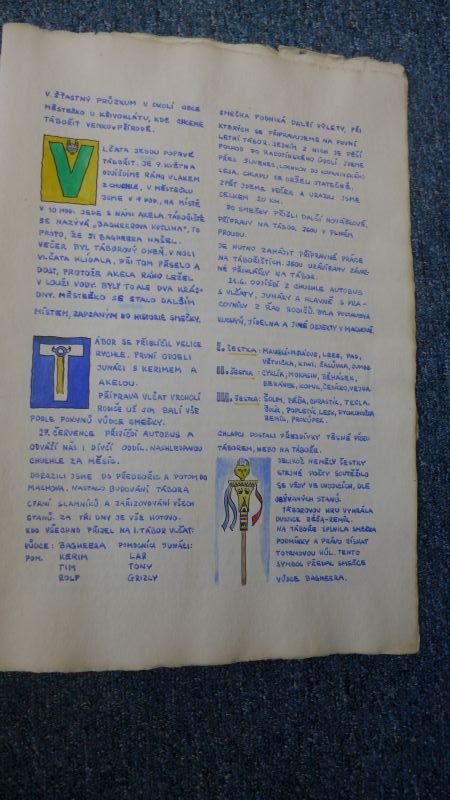 V. ŠŤASTNÝ PRŮZKUM V OKOLÍ OBCE
MĚSTEČKO U KŘIVOKLÁTU, KDE CHCEME
TÁBOŘIT VENKU V PŘÍRODĚ.
VLČATA JEDOU POPRVÉ
TÁBOŘIT. JE 9. KVĚTNA
ODJÍŽDÍME RÁNO VLAKEM
Z CHUCHLE, V MĚSTEČKU
JSME V 9 HOD, NA MÍSTĚ
V 10 HOD. JEDE S NÁMI AKELA. TÁBOŘIŠTĚ
SE NAZÝVÁ „BAGHEEROVA KOTLINA", TO
PROTO, ŽE JI BAGHEERA NAŠEL.
VEČER BYL TÁBOROVÝ OHEŇ. V NOCI
VLČATA HLÍDALA, PŘI TOM PRŠELO A
DOST, PROTOŽE AKELA RÁNO LEŽEL
V LOUŽI VODY. BYLY TO ALE DVA KRÁS-
DNY. MĚSTEČKO SE STALO DALŠÍM
MÍSTEM, ZAPSANÝM DO HISTORIE SMEČKY.
TÁBOR SE PŘIBLÍŽIL VELICE
RYCHLE. PRVNÍ ODJELI
JUNÁCI S KERIMEM A
AKELOU.
PŘÍPRAVA VLČAT VRCHOLÍ
RODIČE UŽ JIM BALÍ VŠE
PODLE POKYNŮ VŮDCE SMEČKY.
27. ČERVENCE PŘIJÍŽDÍ AUTOBUS A
ODVÁŽÍ NÁS I. DÍVČÍ ODDÍL. NASHLEDANOU
CHUCHLE ZA MĚSÍC.
DORAZILI JSME DO PŘEDBOŘIC A POTOM DO
MACHOVA. NASTALO BUDOVÁNÍ TÁBORA
CPANÍ SLAMNÍKŮ A ZAŘIZOVÁNÍ VŠECH
STANŮ. ZA TŘI DNY JE VŠE HOTOVO.
KDO VŠECHNO PŘIJEL NA I. TÁBOR VLČAT:
VŮDCE: BAGHEERA POMOCNÍCI JUNÁCI:
POM. KERIM LAŘ
TIM TONY
ROLF GRIZLY
SMEČKA PODNIKÁ DALŠÍ VÝLETY, PŘI
KTERÝCH SE PŘIPRAVUJEME NA PRVNÍ
LETNÍ TÁBOR. JEDNÍM Z NICH JE PĚŠÍ
POCHOD DO RADOTÍNSKÉHO ÚDOLÍ JDEME
PŘES SLIVENEC, LOCHKOV DO
LESA. CHLAPCI SE DRŽELI STATEČNĚ,
ZPĚT JDEME VEČER A URAZILI JSME
CELKEM 20 KM.
DO SMEČKY PŘIŠLI DALŠÍ NOVÁČKOVÉ.
PŘÍPRAVY NA TÁBOR JSOU V PLNÉM
PROUDU.
JE NUTNO ZAHÁJIT PŘÍPRAVNÉ PRÁCE
NA TÁBOŘIŠTÍCH. JSOU UZAVÍRÁNY ZÁVAZ-
NÉ PŘIHLÁŠKY NA TÁBOR.
21.6. ODJÍŽDÍ Z CHUCHLE AUTOBUS
S VLČATY, JUNÁKY A HLAVNĚ S PRA-
COVNÍKY Z ŘAD RODIČŮ. BYLA POSTAVENA
KUCHYŇ, JÍDELNA A JINÉ OBJEKTY V MACHOVĚ.
I. ŠESTKA: MAUGLÍ-MRAVEC, LEES, PAD,
VĚTVIČKA, KIWI, ŽALUDKA,
II. ŠESTKA: CYRLÍK, MOKASÍN, BĚHÁSEK,
BERÁNEK, KOMÁR, ČENŽKO, VEJDA
III. ŠESTKA: ŠOLIM, BĚĎA, TESLA,
POPLETÍK, LESK, RYCHONOŽKA
REMÍK, PROKŮPEK.
CHLAPCI DOSTALI PŘEZDÍVKY TĚSNĚ PŘED
TÁBOREM, NEBO NA TÁBOŘE.
JELIKOŽ NEMĚLY ŠESTKY
STEJNÉ POČTY SOUTĚŽILO
SE VŽDY VE DVOJICÍCH, DLE
OBÝVANÝCH STANŮ.
TÁBOROVOU HRU VYHRÁLA
DVOJICE BĚĎA-REMÍK.
NA TÁBOŘE SPLNILA SMEČKA
PODMÍNKY A PRÁVO ZÍSKAT
TOTEMOVOU HŮL. TENTO
SYMBOL PŘEDAL SMEČCE
VŮDCE BAGHEERA.